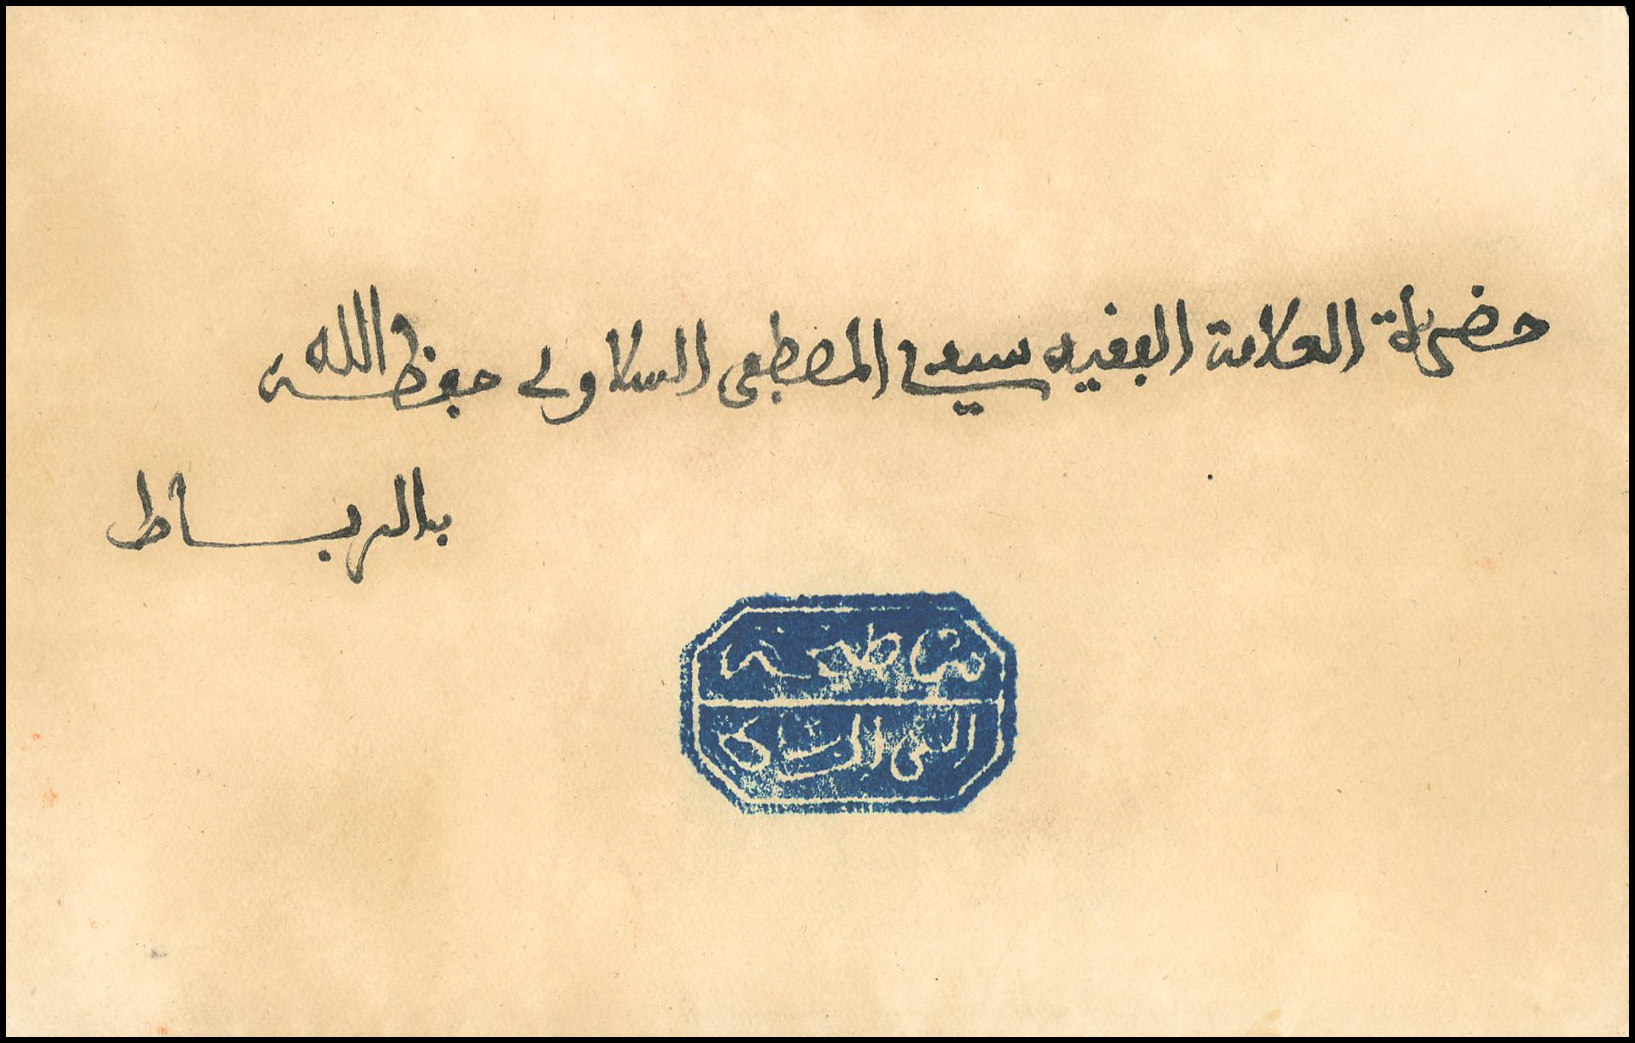 حضرة العلامة الفقيه سيدي المصطفى السلاوي حفظه الله
بالرباط